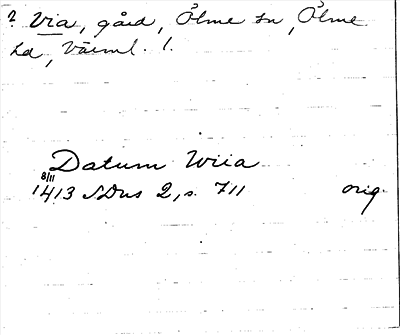 ? Via, gård, Ölme sn, Ölme
hd, Värml. l.
Datum Wiia
8/11
1413 SDns 2, s. 711 orig.